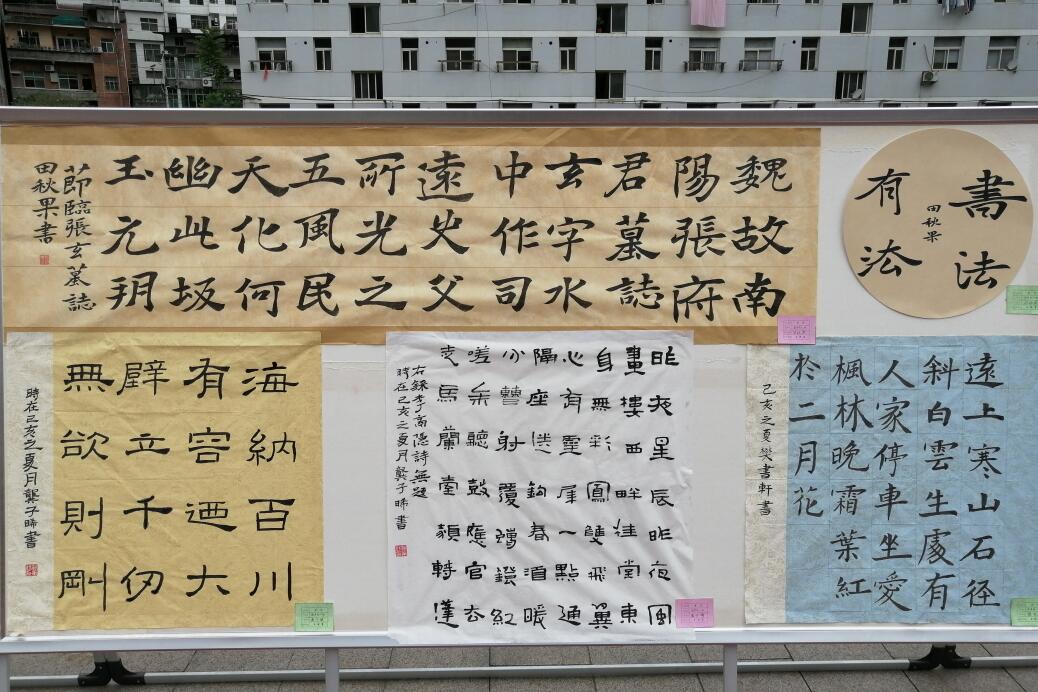 魏故南
陽張府
君墓誌
玄字水
中作司
遠史父
所光之
五風民
天化何
幽此坂
玉元玥
節臨張玄墓誌
田秋果書
書法
有法
田秋果
海納百川
有容迺大
壁立千仞
無欲則剛
時在己亥之夏月龔子晞書
昨夜星辰昨夜風
畫樓西畔桂堂東
身無彩鳳雙飛翼
心有靈犀一點通
隔座送鉤春酒暖
分曹射覆蠟鐙紅
嗟余聽鼓應官去
走馬蘭臺類轉蓬
右錄李商隱詩無題
時在己亥之夏月龔子晞書
遠上寒山石径
斜白雲生處有
人家停車坐愛
楓林晚霜葉紅
於二月花
己亥之夏樊書軒書